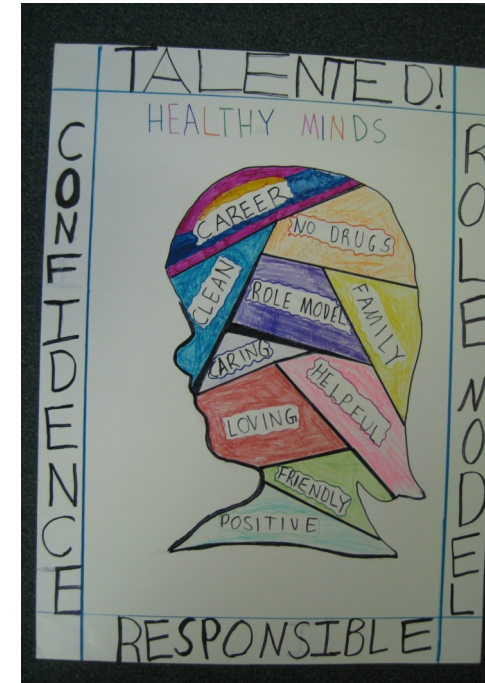 TALENTED!
HEALTHY MINDS
CONFIDENCE
CAREER
NO DRUGS
CLEAN
ROLE MODEL
FAMILY
CARING
HELPFUL
LOVING
FRIENDLY
POSITIVE
ROLE NODEL
RESPONSIBLE